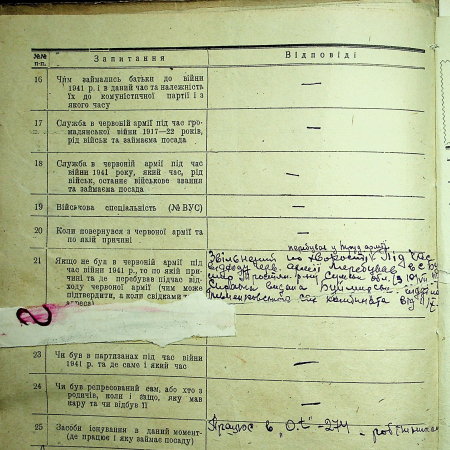 №№ п-п. Запитання Відповіді
16 Чим займались батьки до війни
1941 р. і в даний час та належність
їх до комуністичної партії і з
якого часу
—
17 Служба в червоній армії під час гро-
мадянської війни 1917—22 років,
рід військ та займаєма посада
—
18 Служба в червоній армії під час
війни 1941 року, який час, рід
військ, останнє військове звання
та займаєма посада
—
19 Військова спеціальність (№ ВУС)
—
20 Коли повернувся з червоної армії та
по якій причині
—
21 Якщо не був в червоній армії під
час війни 1941 р., то по якій причи-
ні та де перебував підчас від-
ходу червоної армії (чим може
підтвердити, а коли свідками
адреса)
перебував у
Звільнений по хворобі. Під час
відходу черв. армії перебував в с.
Тростян. р-ну Сумськ. обл.
Справка видана
комбината від
23 Чи був в партизанах під час війни
1941 р. та де саме і який час
—
24 Чи був репресований сам, або хто з
родичів, коли і защо, яку мав
кару та чи відбув її
—
25 Засоби існування в даний момент-
(де працює і яку займає посаду)
Працює в „О.С"-274